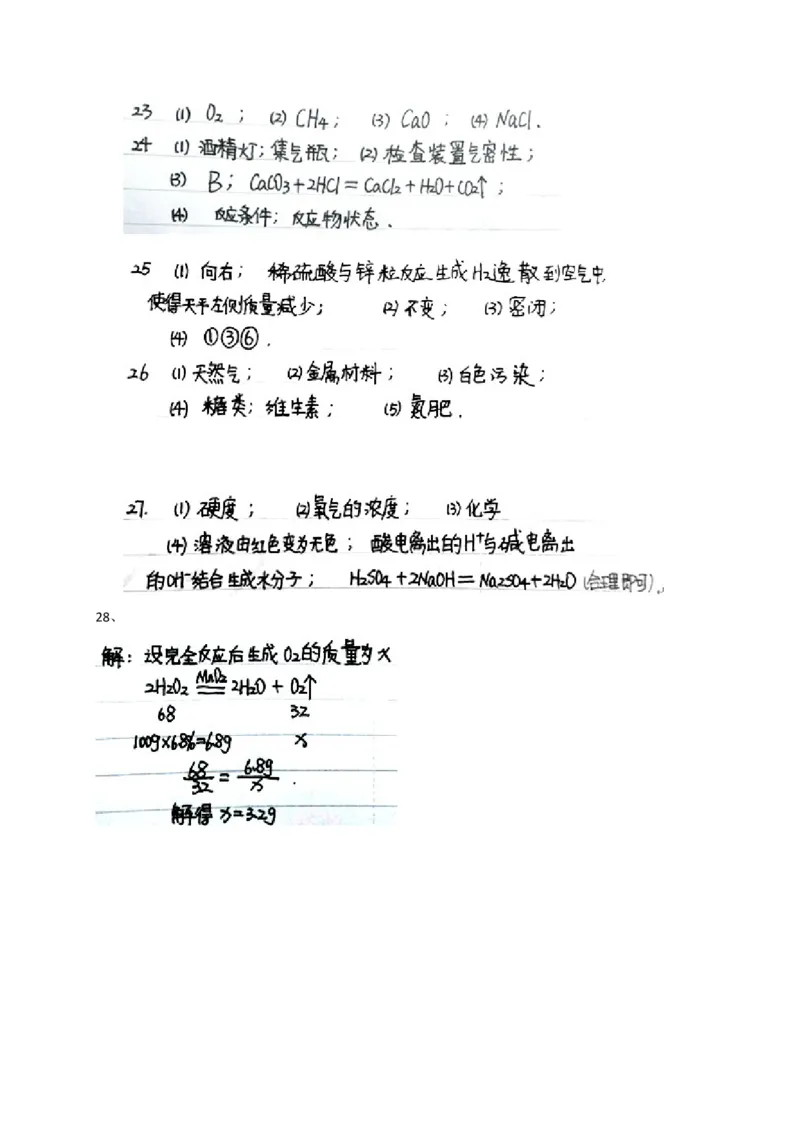 23 (1) O₂ ; (2) CH₄ ; (3) CaO ; (4) NaCl.
24 (1) 酒精灯; 集气瓶; (2) 检查装置气密性;
(3) B; CaCO₃+2HCl=CaCl₂+H₂O+CO₂↑;
(4) 反应条件; 反应物状态.
25 (1) 向右; 稀硫酸与锌粒反应生成H₂逸散到空气中,
使得天平左侧质量减少; (2) 不变; (3) 密闭;
(4) ①③⑥.
26 (1) 天然气; (2) 金属材料; (3) 白色污染;
(4) 糖类; 维生素; (5) 氮肥.
27. (1) 硬度; (2) 氧气的浓度; (3) 化学
(4) 溶液由红色变为无色; 酸电离出的H⁺与碱电离出
的OH⁻结合生成水分子; H₂SO₄+2NaOH=Na₂SO₄+2H₂O (合理即可).
28、
解: 设完全反应后生成O₂的质量为x
2H₂O₂ MnO₂ 2H₂O + O₂↑
68 32
100g×6.8%=6.8g x
68/32 = 6.8g/x
解得 x=3.2g